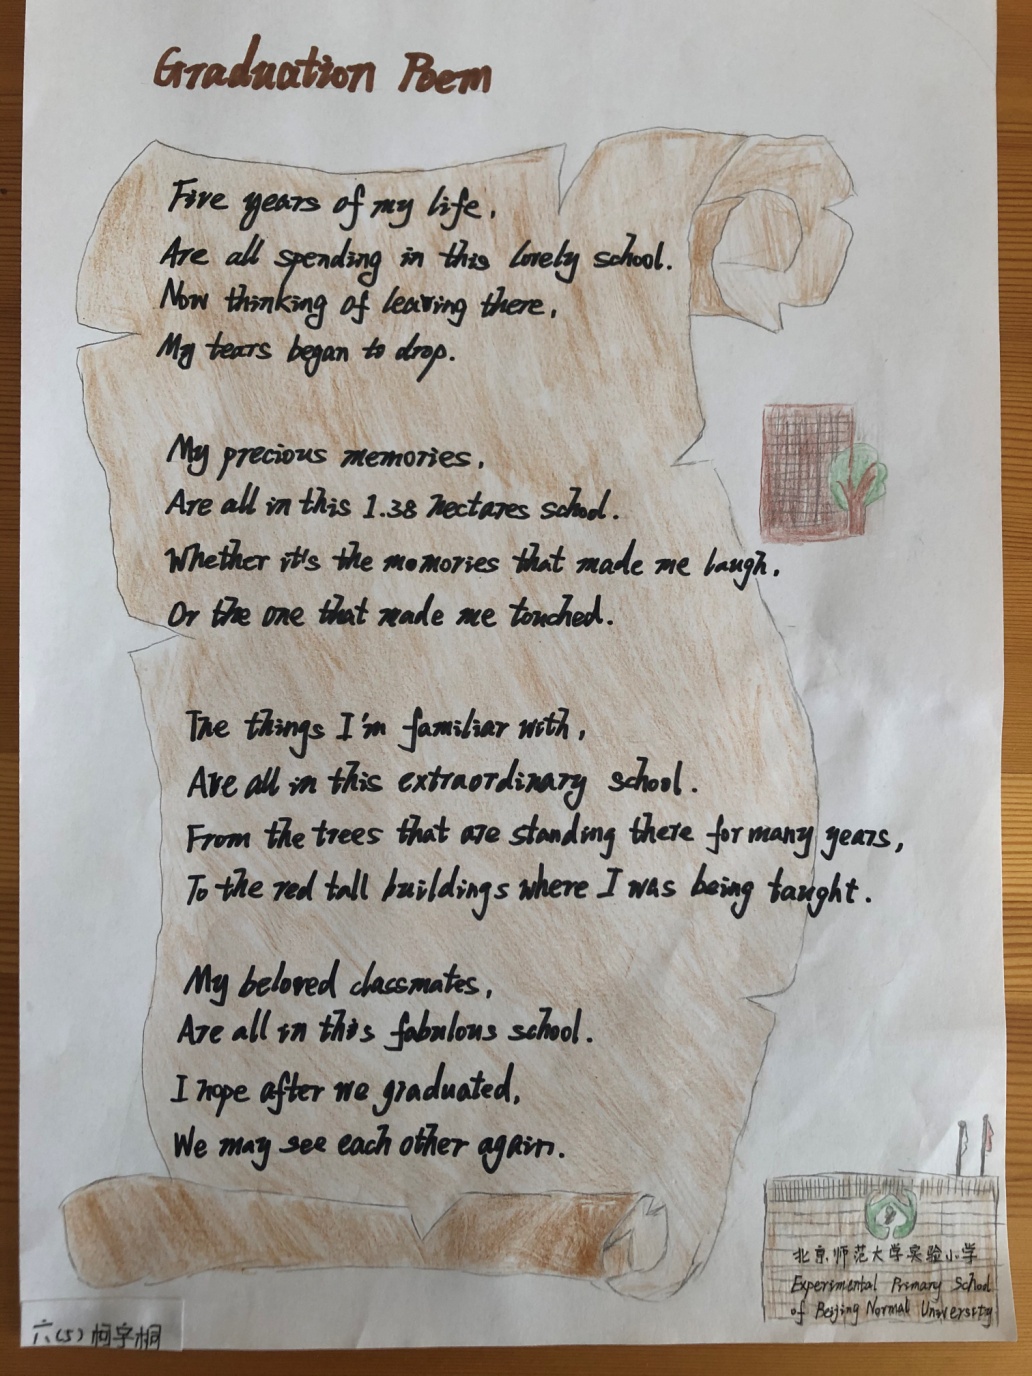 Graduation Poem
Five years of my life,
Are all spending in this lovely school.
Now thinking of leaving there,
My tears began to drop.
My precious memories,
Are all in this 1.38 hectares school.
Whether it's the memories that made me laugh,
Or the one that made me touched.
The things I'm familiar with,
Are all in this extraordinary school.
From the trees that are standing there for many years,
To the red tall buildings where I was being taught.
My beloved classmates,
Are all in this fabulous school.
I hope after we graduated,
We may see each other again.
北京师范大学实验小学
Experimental Primary School
of Beijing Normal University
六(5) 柯宇桐